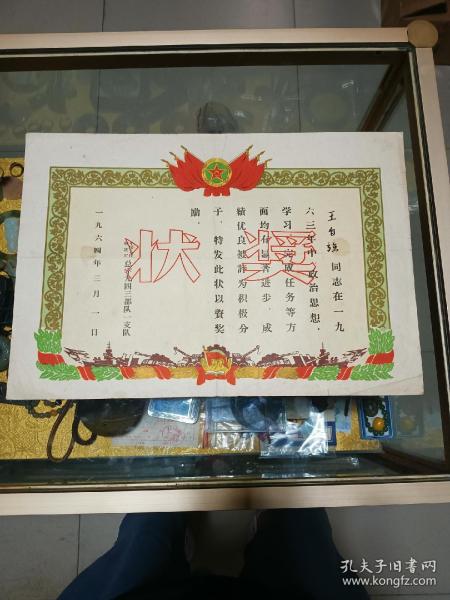 奖状
王自强同志在一九
六三年中政治思想、
学习、完成任务等方
面均有显著进步，成
绩优良被评为积极分
子，特发此状以资奖
励。
四三部队一支队
一九六四年三月一日
孔夫子旧书网
www.kongfz.com